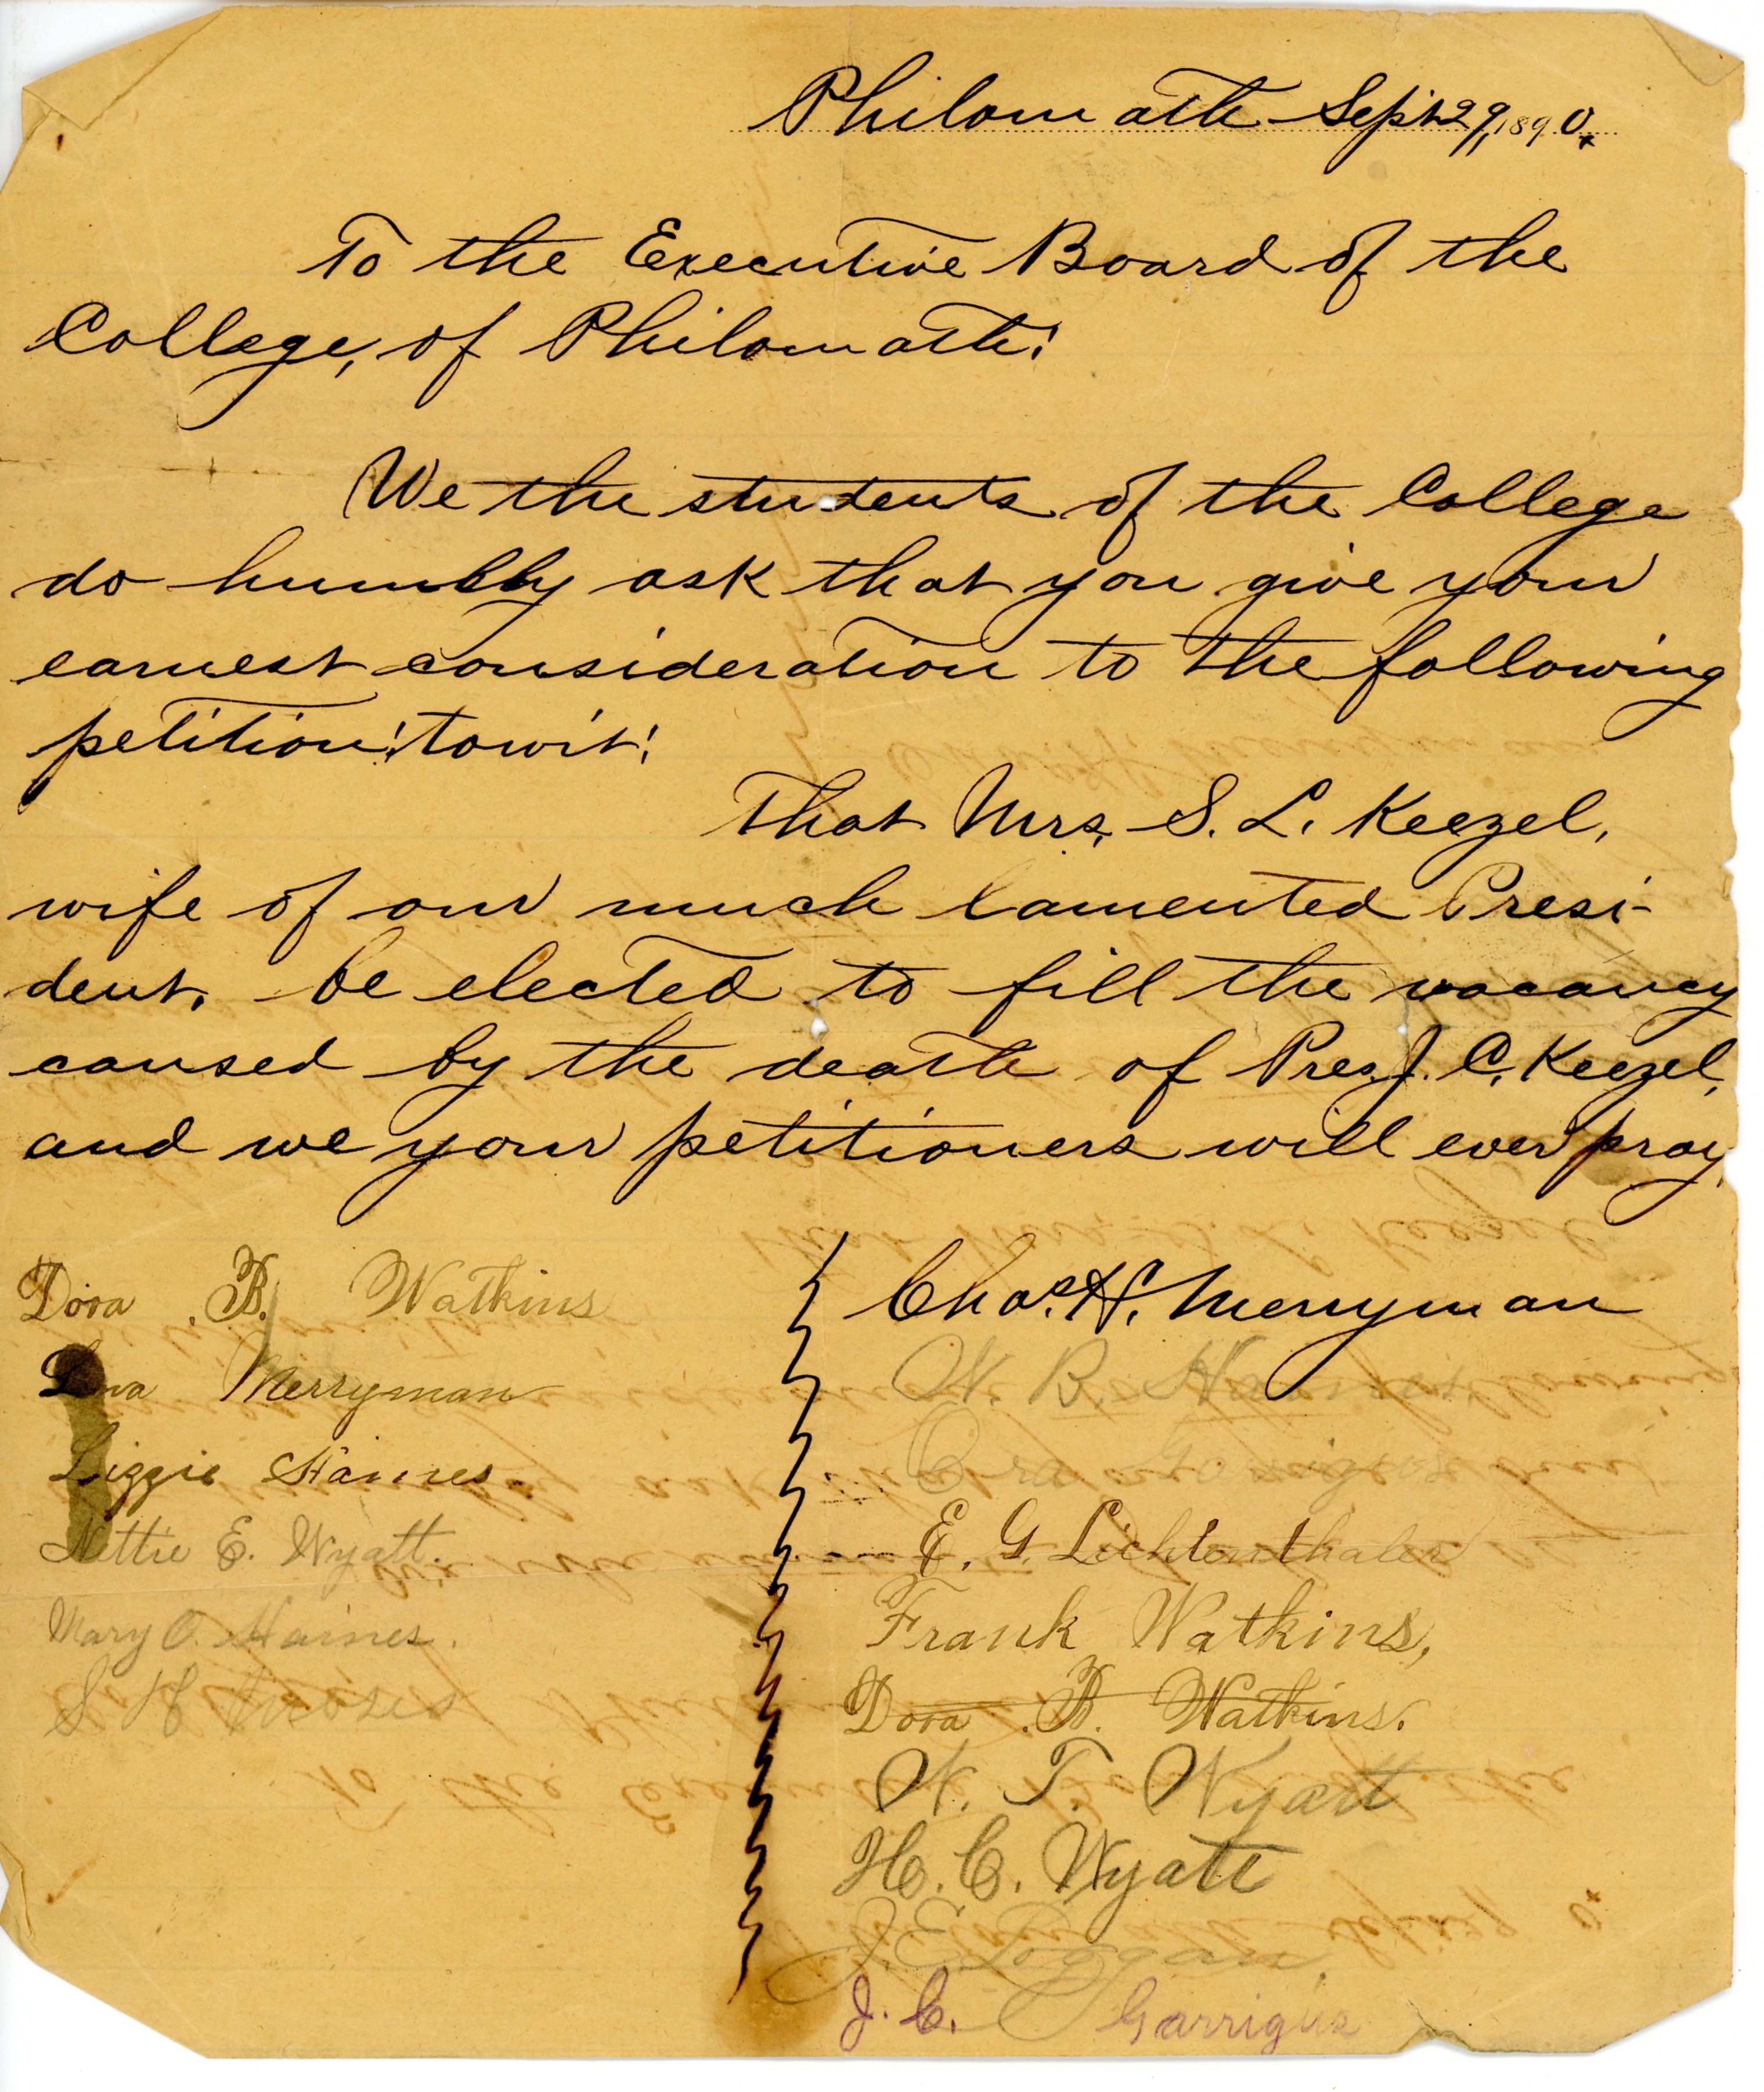 Philomath Sept 29, 1890.
To the Executive Board of the
College, of Philomath:
We the students of the College
do humbly ask that you give your
earnest consideration to the following
petition: towit:
That Mrs. S. L. Keezel,
wife of our much lamented Presi-
dent, be elected to fill the vacancy
caused by the death of Pres. J. C. Keezel,
and we your petitioners will ever pray.
Dora B. Watkins
Merryman
Lizzie Haines
Nettie E. Wyatt.
Mary O. Haines.
S H Moses
Chas. H. Merryman
W. B.
Ora Garrigus
E. G. Lichtenthaler
Frank Watkins,
Dora B. Watkins.
W. T. Wyatt
H. C. Wyatt
J. E. Loggan.
J. C. Garrigus